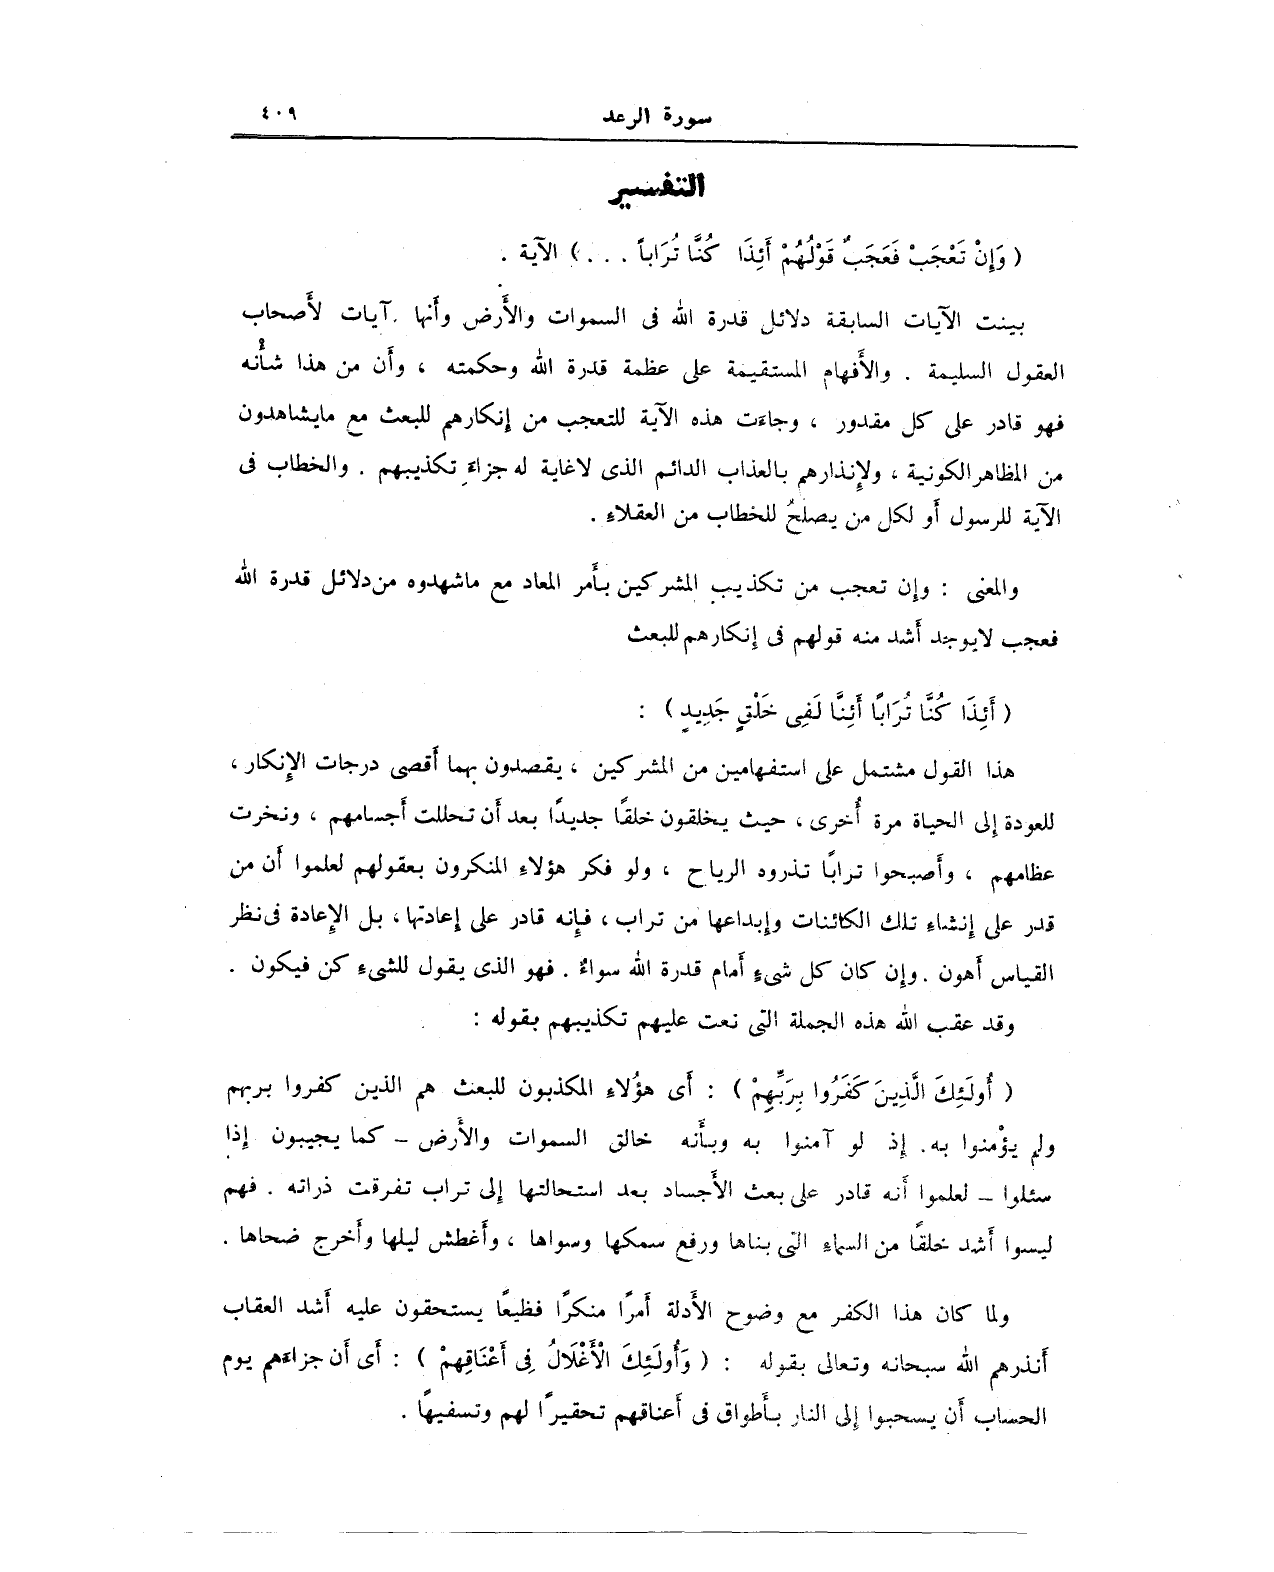 سورة الرعد
٤٠٩
التفسير
( وَإِنْ تَعْجَبْ فَعَجَبٌ قَوْلُهُمْ أَئِذَا كُنَّا تُرَاباً . . . ) الآية .
بينت الآيات السابقة دلائل قدرة الله فى السموات والأَرض وأنها آيات لأَصحاب
العقول السليمة . والأَفهام المستقيمة على عظمة قدرة الله وحكمته ، وأن من هذا شأْنه
فهو قادر على كل مقدور ، وجاءَت هذه الآية للتعجب من إنكارهم للبعث مع مايشاهدون
من المظاهر الكونية ، ولإنذارهم بالعذاب الدائم الذى لاغاية له جزاءَ تكذيبهم . والخطاب فى
الآية للرسول أَو لكل من يصلحُ للخطاب من العقلاءِ .
والمعنى : وإن تعجب من تكذيب المشركين بأَمر المعاد مع ماشهدوه من دلائل قدرة الله
فعجب لايوجد أَشد منه قولهم فى إنكارهم للبعث
( أَئِذَا كُنَّا تُرَابًا أَئِنَّا لَفِى خَلْقٍ جَدِيدٍ ) :
هذا القول مشتمل على استفهامين من المشركين ، يقصدون بهما أَقصى درجات الإِنكار ،
للعودة إلى الحياة مرة أُخرى ، حيث يخلقون خلقًا جديدًا بعد أَن تحللت أَجسامهم ، ونخرت
عظامهم ، وأَصبحوا ترابًا تذروه الرياح ، ولو فكر هؤلاءِ المنكرون بعقولهم لعلموا أَن من
قدر على إنشاءِ تلك الكائنات وإبداعها من تراب ، فإِنه قادر على إعادتها ، بل الإِعادة فى نظر
القياس أَهون . وإن كان كل شىءٍ أَمام قدرة الله سواءٌ . فهو الذى يقول للشىءِ كن فيكون .
وقد عقب الله هذه الجملة التى نعت عليهم تكذيبهم بقوله :
( أُولَئِكَ الَّذِينَ كَفَرُوا بِرَبِّهِمْ ) : أَى هؤُلاءِ المكذبون للبعث هم الذين كفروا بربهم
ولم يؤْمنوا به. إِذ لو آمنوا به وبأَنه خالق السموات والأَرض – كما يجيبون إِذا
سئلوا – لعلموا أَنه قادر على بعث الأَجساد بعد استحالتها إلى تراب تفرقت ذراته . فهم
ليسوا أَشد خلقًا من السماءِ التى بناها ورفع سمكها وسواها ، وأَغطش ليلها وأَخرج ضحاها .
ولما كان هذا الكفر مع وضوح الأَدلة أَمرًا منكرًا فظيعًا يستحقون عليه أَشد العقاب
أَنذرهم الله سبحانه وتعالى بقوله : ( وَأُولَئِكَ الْأَغْلَالُ فِى أَعْنَاقِهِمْ ) : أَى أَن جزاءَهم يوم
الحساب أَن يسحبوا إِلى النار بأَطواق فى أَعناقهم تحقيرًا لهم وتسفيهًا .